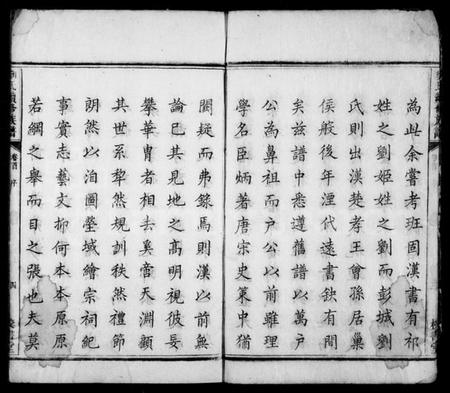 為此余嘗考班固漢書有祁
姓之劉姬姓之劉而彭城劉
氏則出漢楚孝王會孫居巢
侯般後年湮代遠書缺有間
矣茲譜中悉遵舊譜以萬戶
公為鼻祖而戶公以前雖理
學名臣炳著唐宗史策中猶
闕疑而弗錄焉則漢以前無
論已其見地之高明視彼妄
攀華胄者相去奚啻天淵顧
其世系犂然規訓秩然禮節
朗然以洎圖塋域繪宗祠紀
事實志藝文抑何本本原原
若綱之舉而目之張也夫莫
卷首 序
四